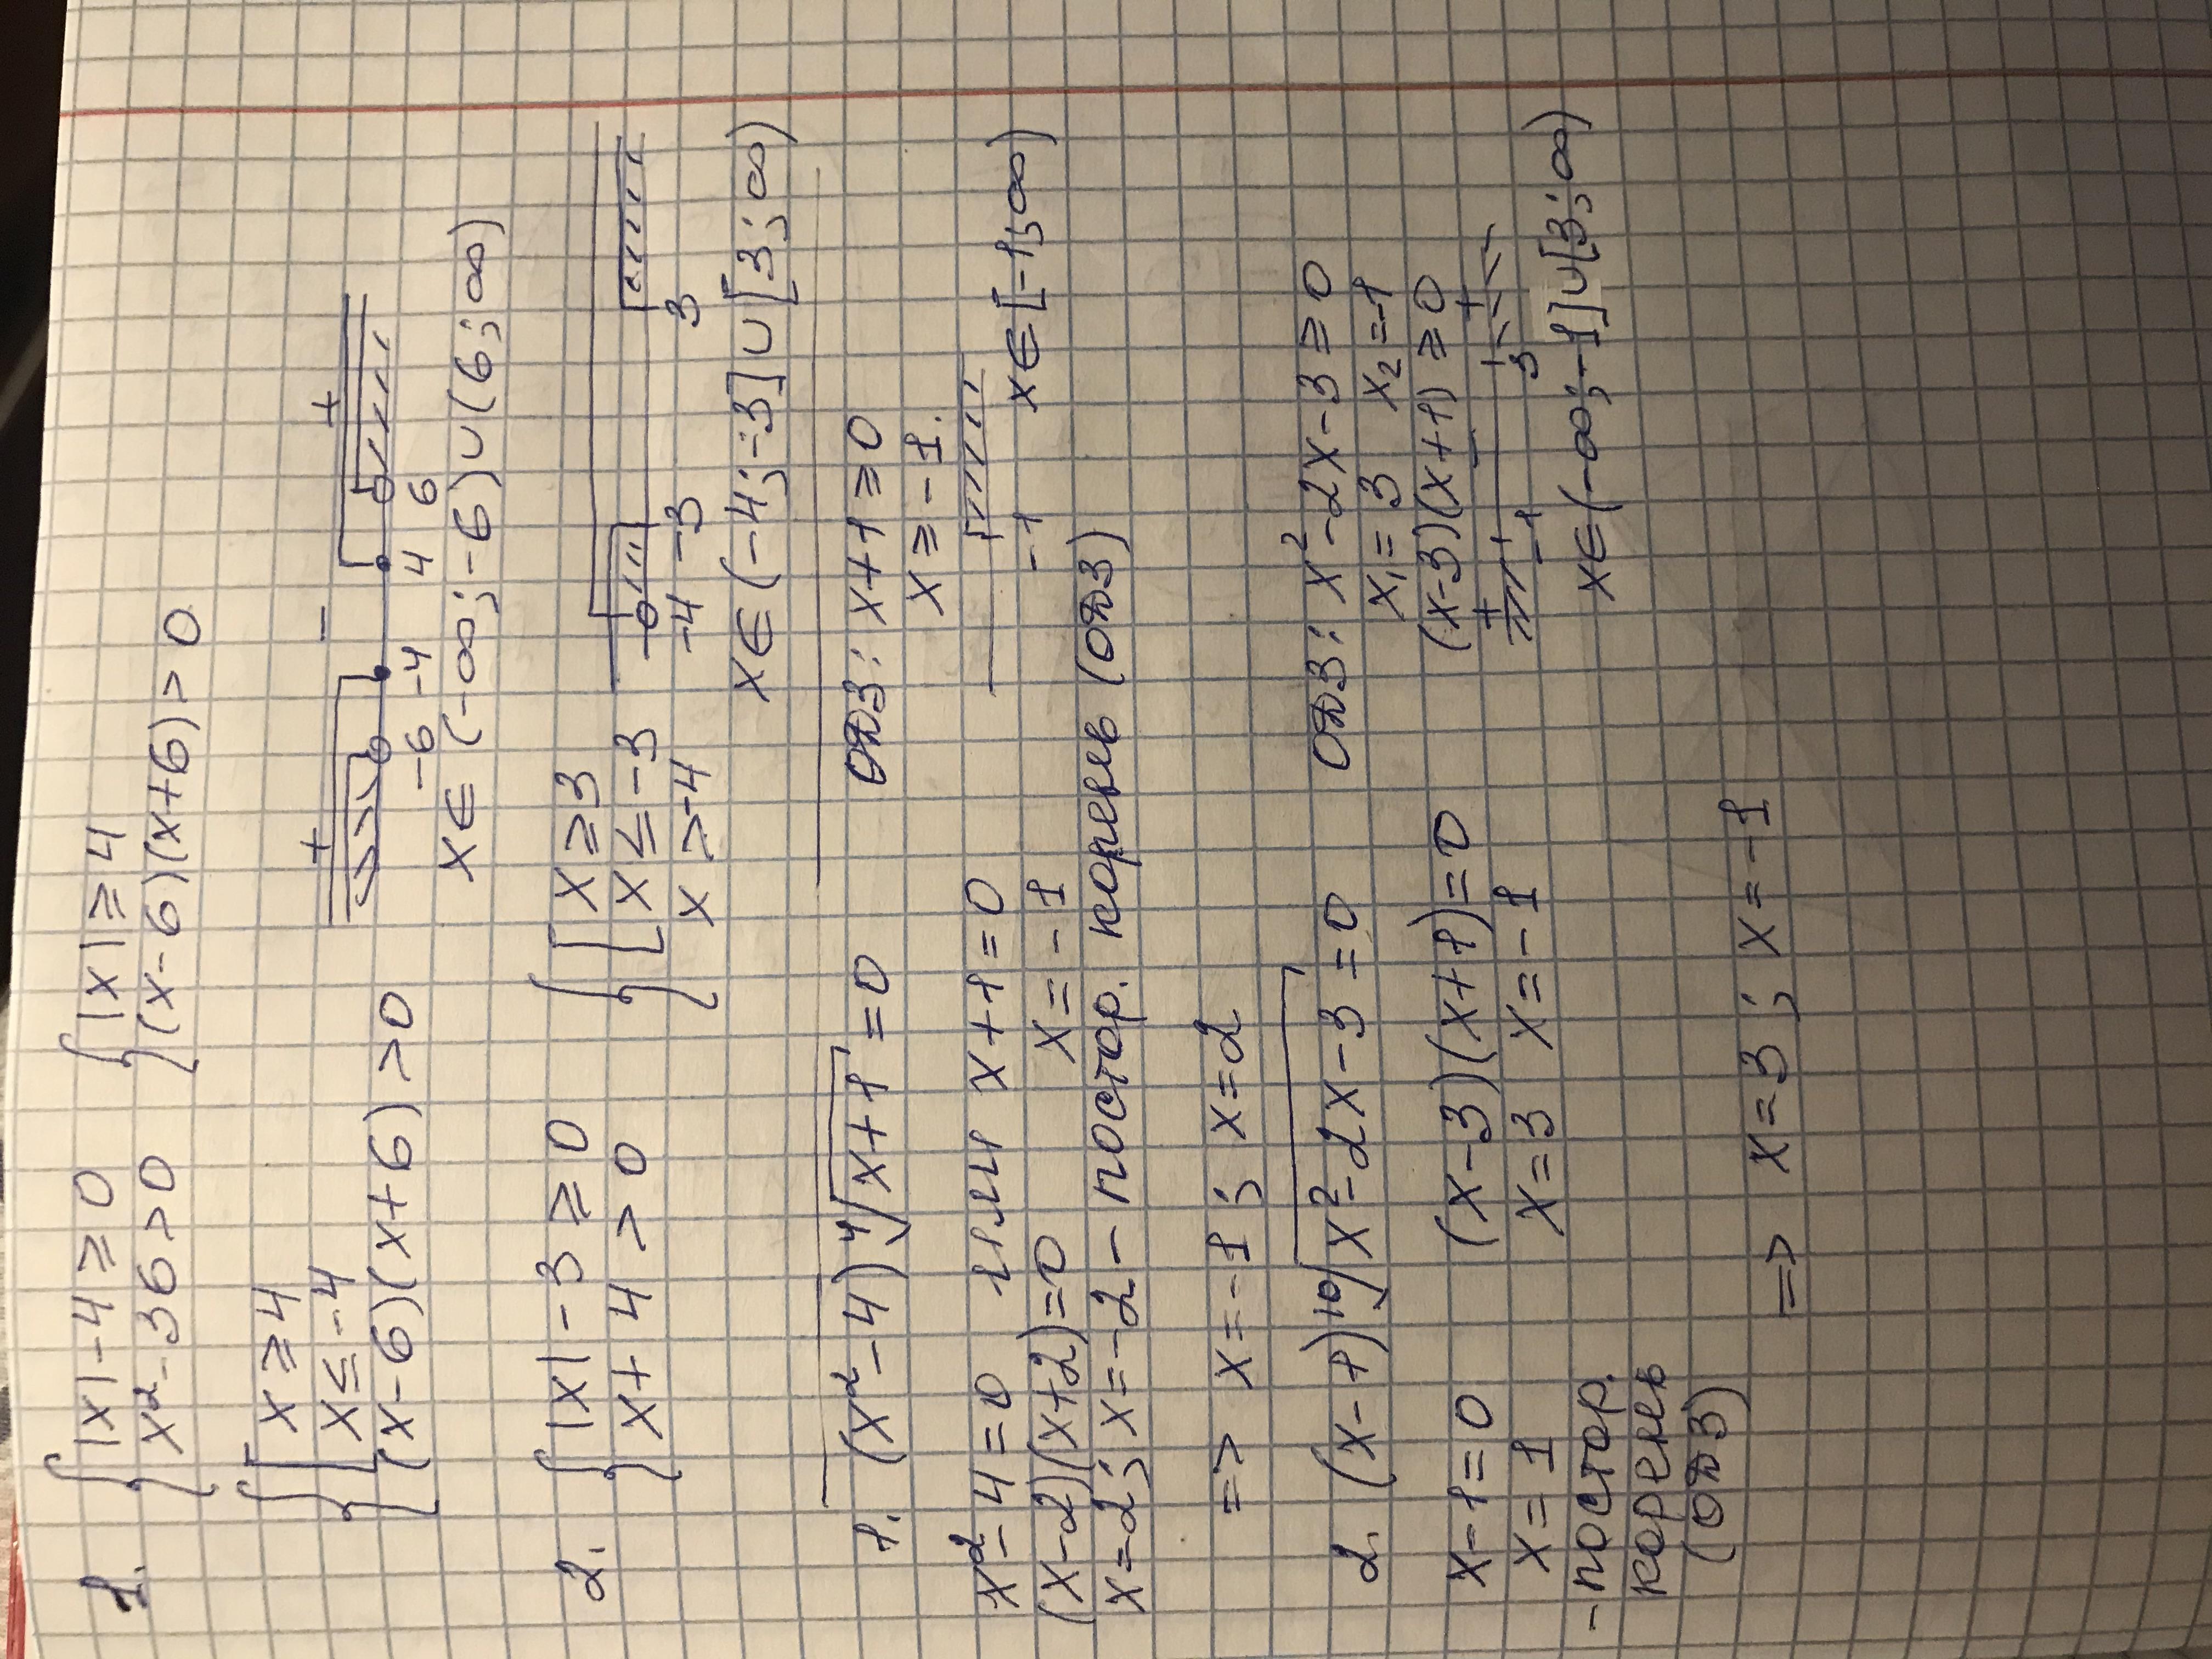 1. { |x|-4 ≥ 0 { |x| ≥ 4
x²-36 > 0 (x-6)(x+6) > 0
{ [ x ≥ 4
x ≤ -4
(x-6)(x+6) > 0
+ - +
-6 -4 4 6
x ∈ (-∞; -6) ∪ (6; ∞)
2. { |x|-3 ≥ 0 { [ x ≥ 3
x+4 > 0 x ≤ -3
x > -4
-4 -3 3
x ∈ (-4; -3] ∪ [3; ∞)
1. (x²-4) ⁴√(x+1) = 0 ОДЗ: x+1 ≥ 0
x ≥ -1.
x²-4=0 или x+1=0
(x-2)(x+2)=0 x=-1
-1 x ∈ [-1; ∞)
x=2; x=-2 - постор. корень (ОДЗ)
=> x=-1; x=2
2. (x-1) ¹⁰√(x²-2x-3) = 0 ОДЗ: x²-2x-3 ≥ 0
x₁=3 x₂=-1
x-1=0 (x-3)(x+1)=0 (x-3)(x+1) ≥ 0
x=1 x=3 x=-1
+ - +
-1 3
- постор. x ∈ (-∞; -1] ∪ [3; ∞)
корень
(ОДЗ)
=> x=3; x=-1